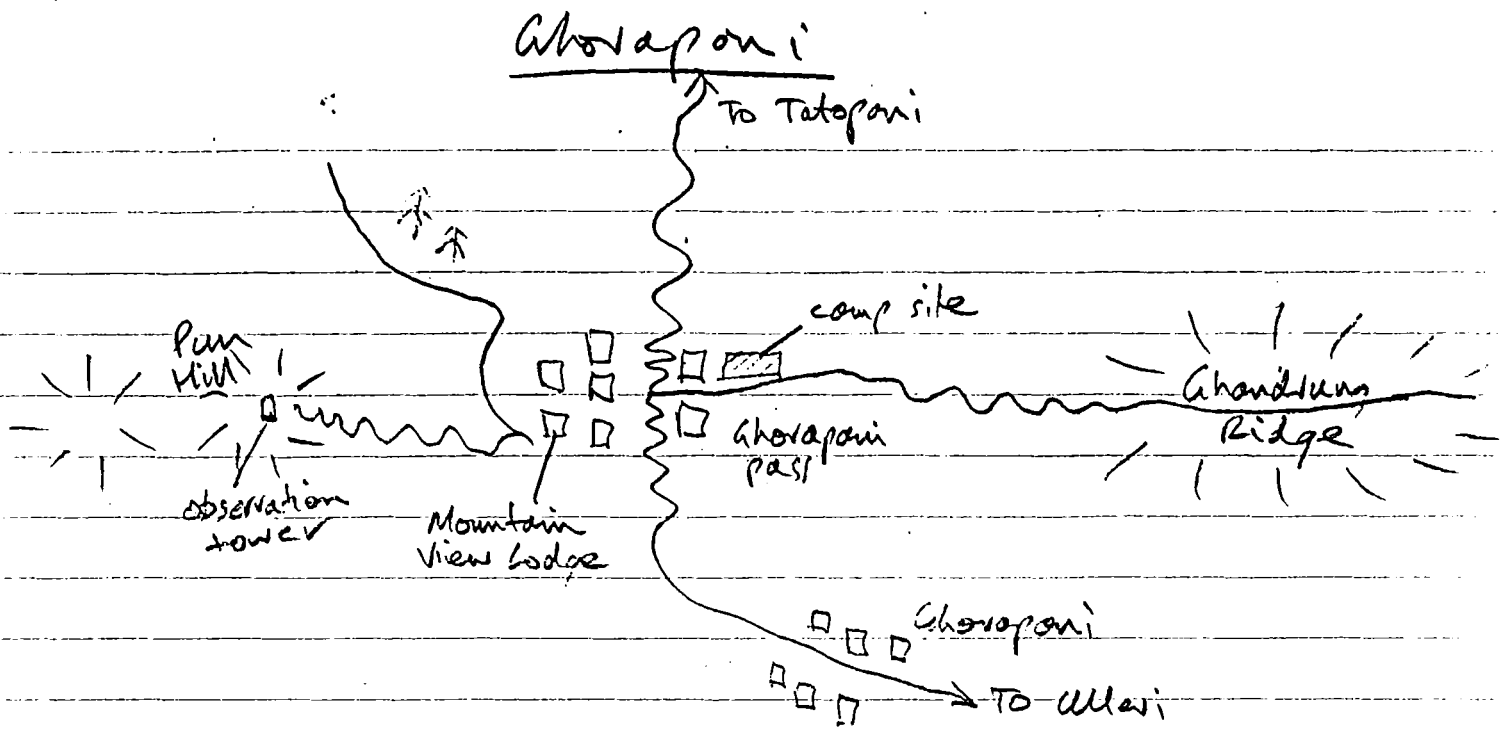 Ghorapani
To Tatopani
camp site
Pun
Hill
Ghandrung
Ridge
Ghorapani
pass
observation
tower
Mountain
View Lodge
Ghorapani
To Ulleri